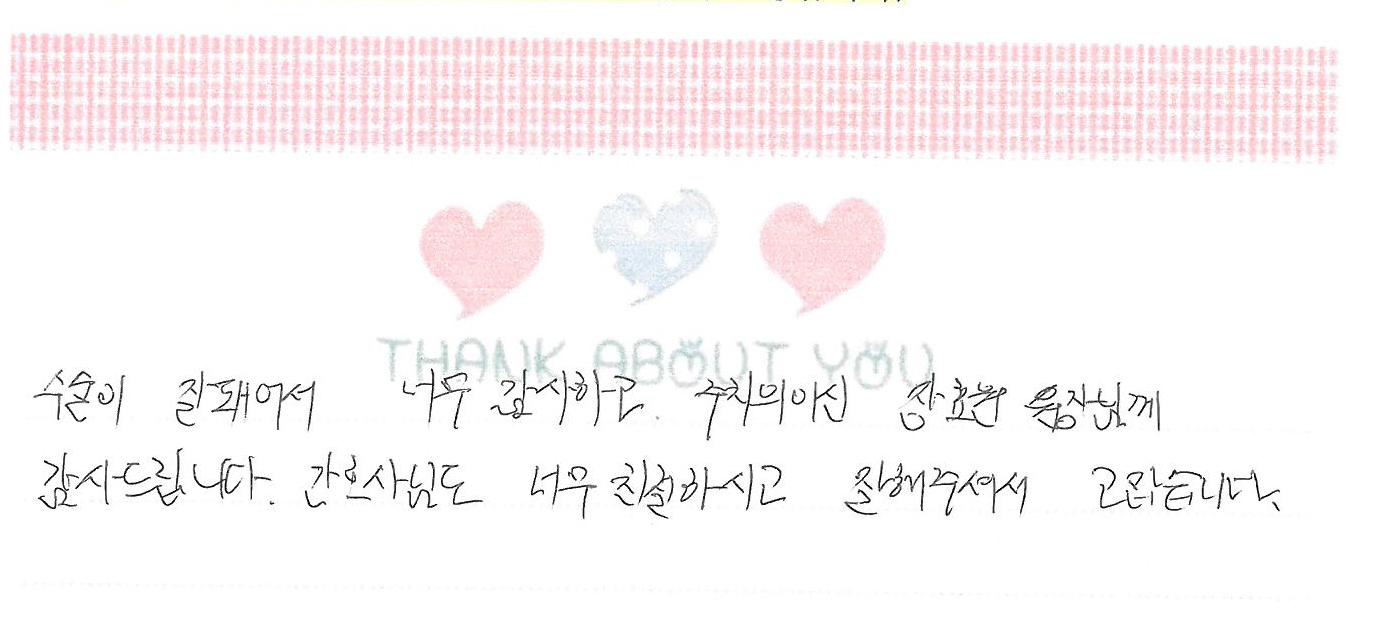 THANK ABOUT YOU
수술이 잘돼어서 너무 감사하고. 주치의이신 장효준 원장님께
감사드립니다. 간호사님도 너무 친절하시고 잘해주셔서 고맙습니다.